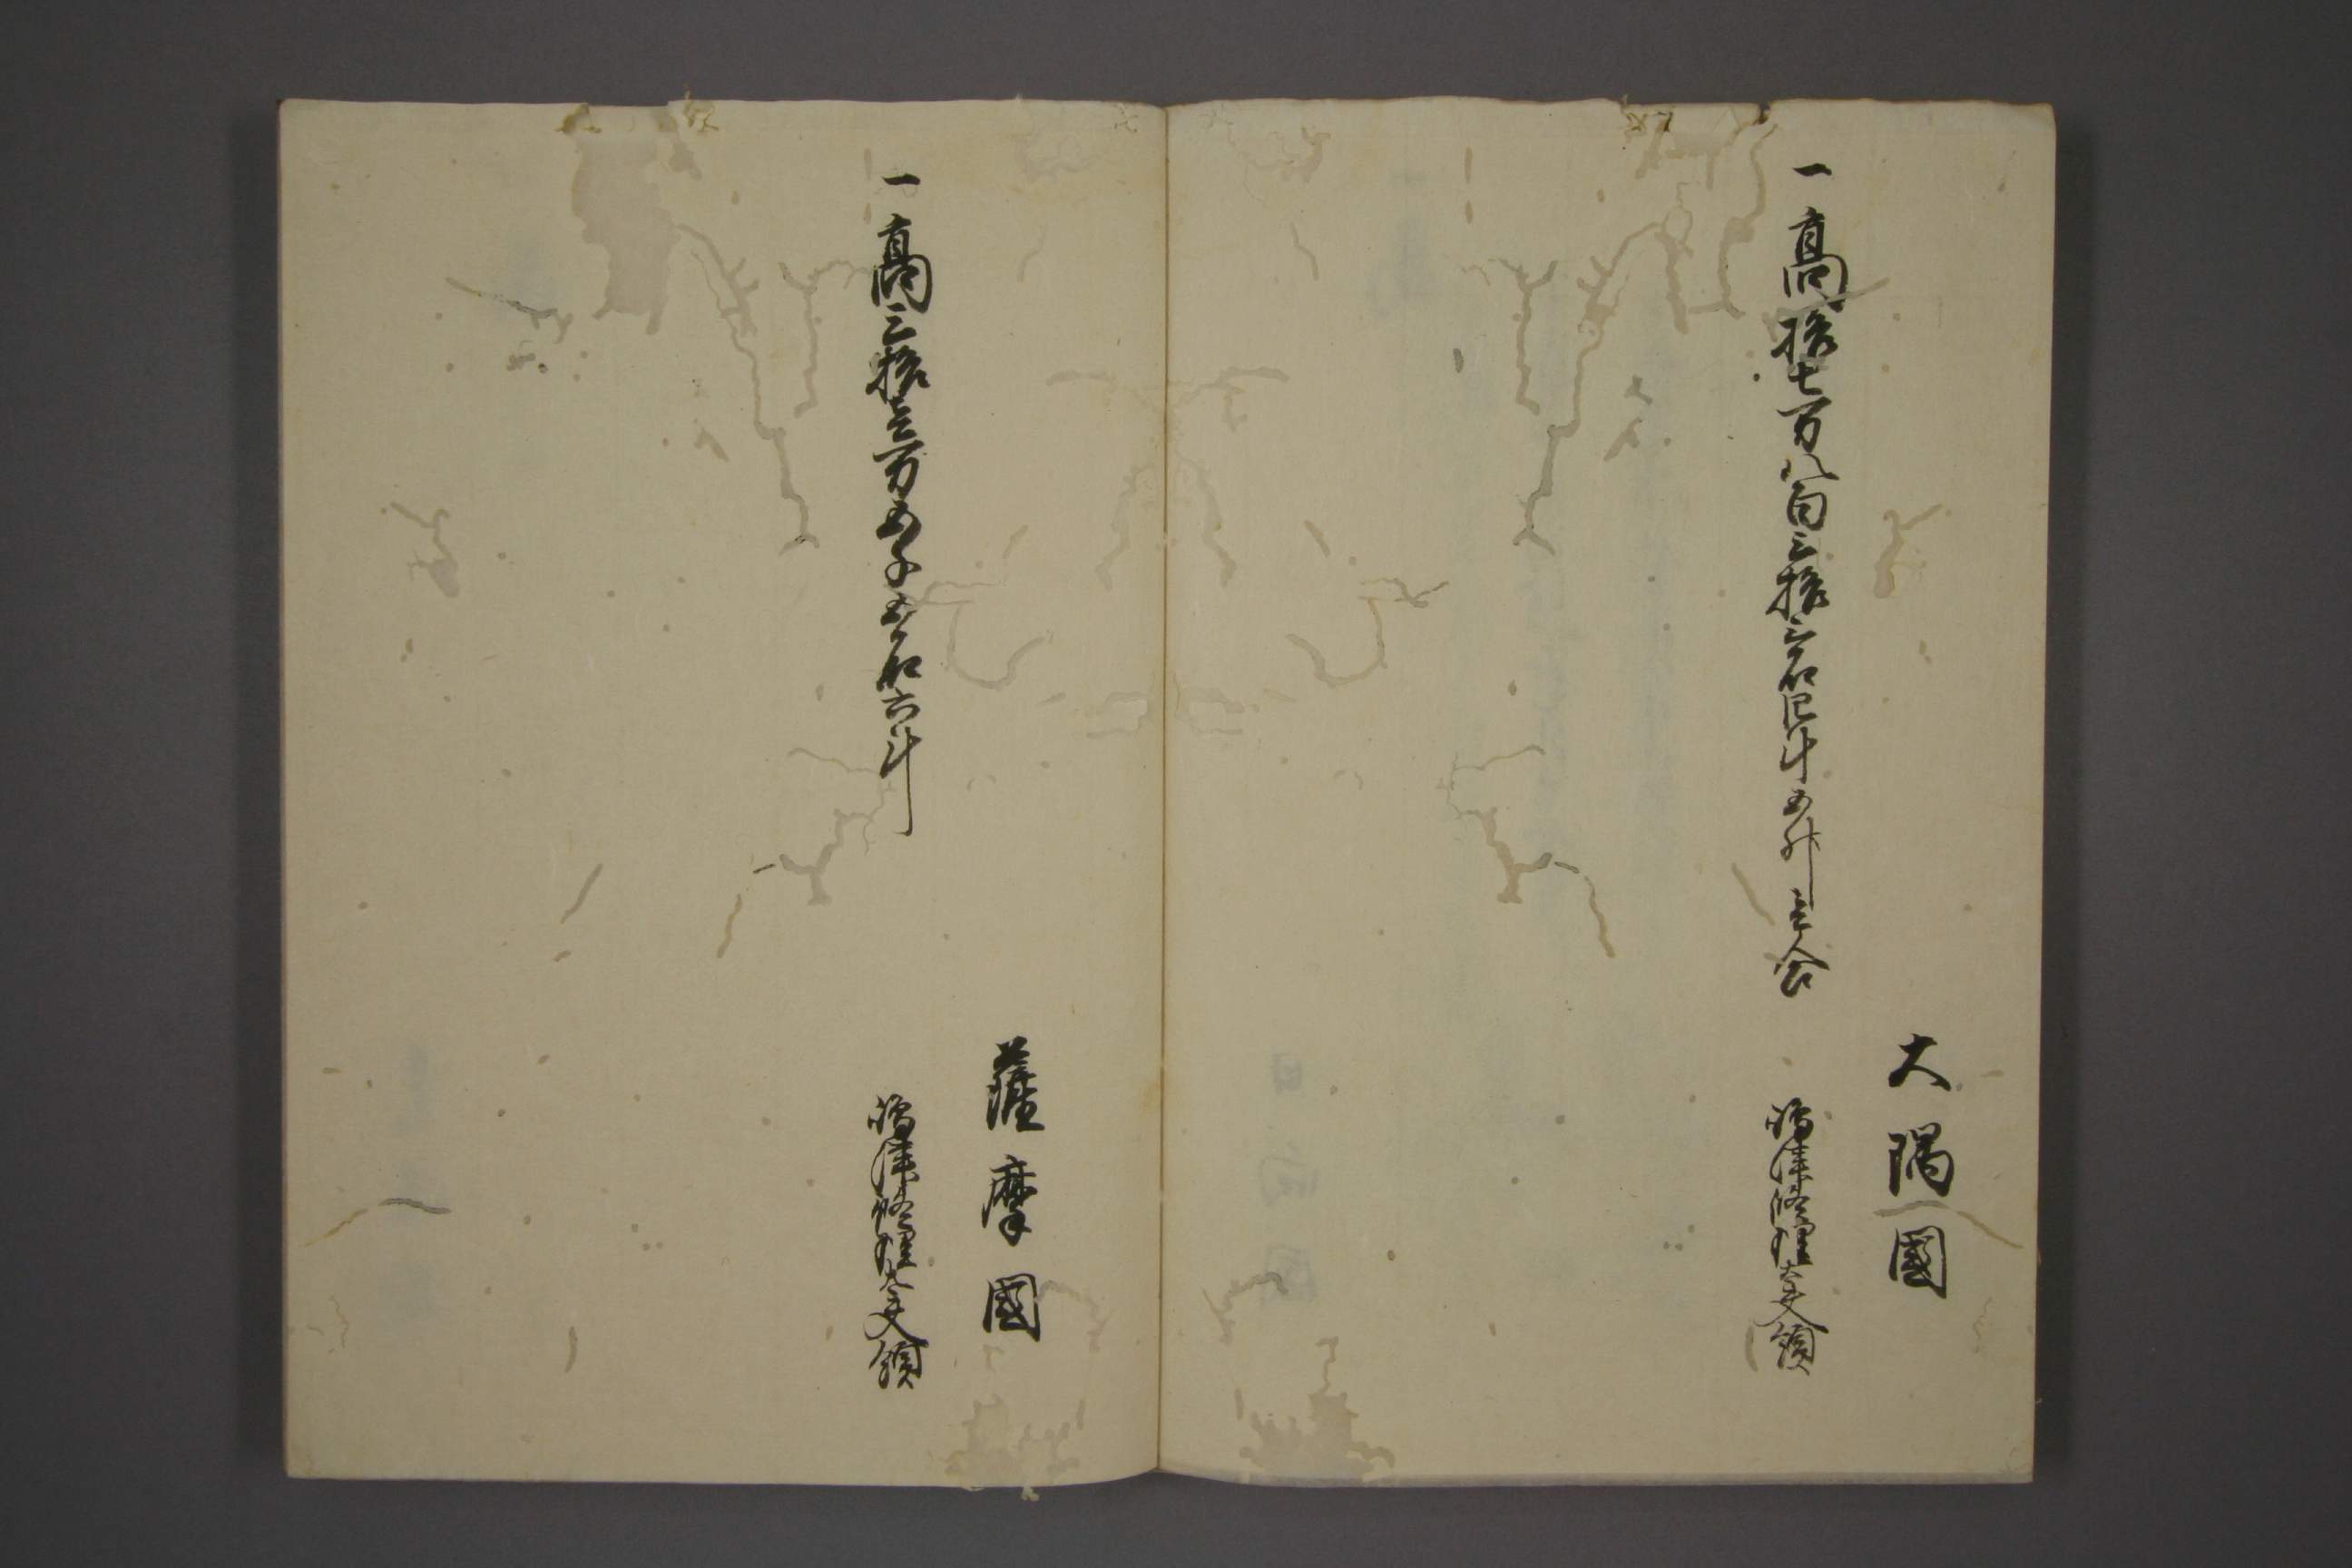 大隅國
一高拾七万八百三拾三石四斗五升壱合
嶋津修理大夫領
薩摩國
一高三拾壱万五千五石六斗
嶋津修理大夫領